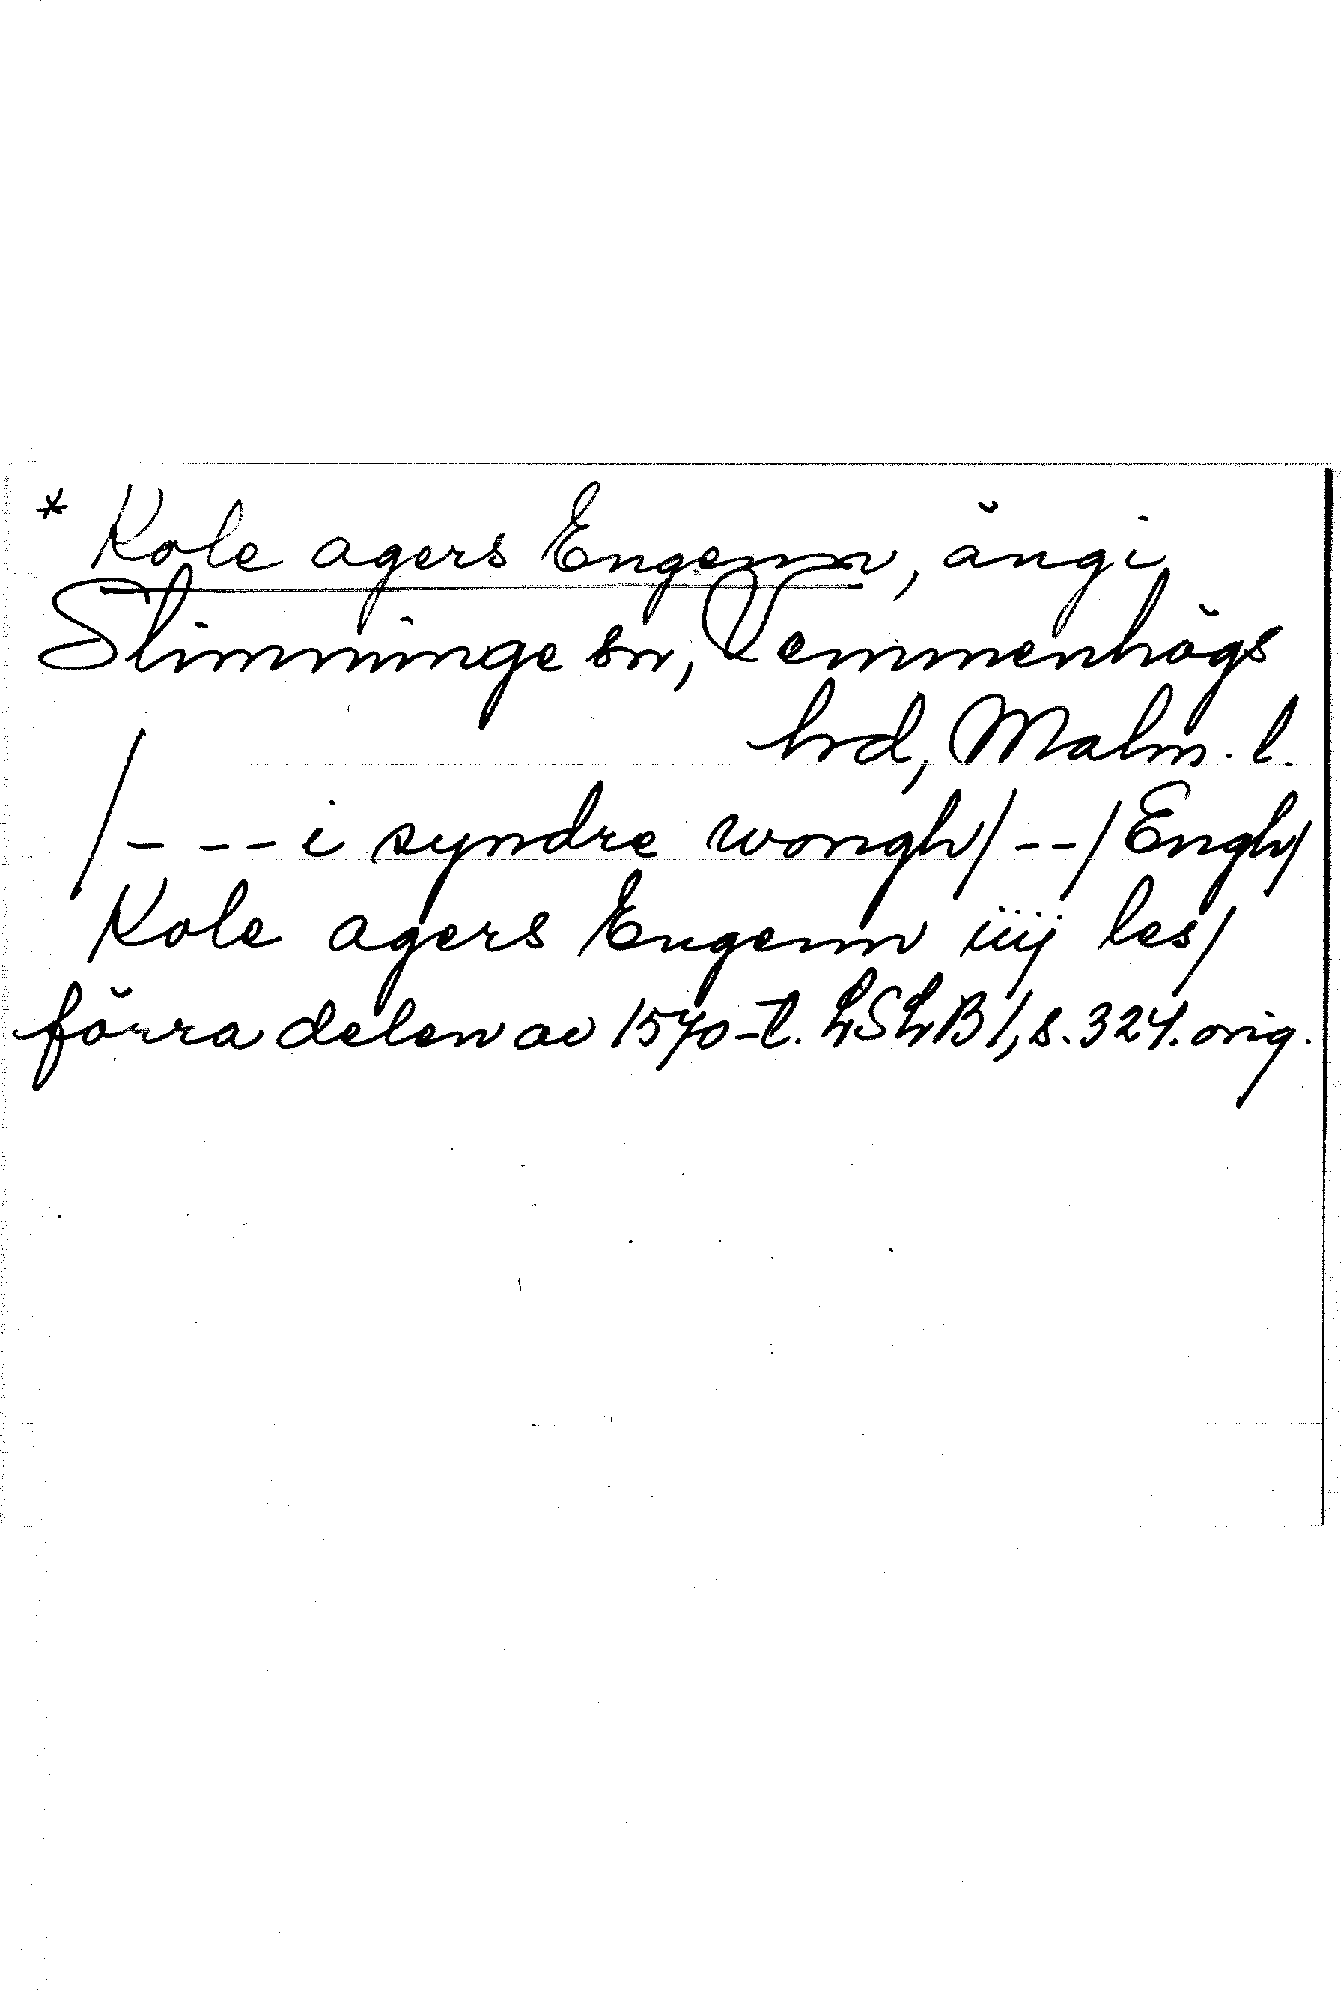 * Kole agers Engenn, äng i
Slimminge sn, Vemmenhögs
hrd, Malm. l.
/- -- i syndre wongh/ -- / Engh/
Kole agers Engenn iiij les/
förra delen av 1570-t. LSLB 1, s. 324. orig.